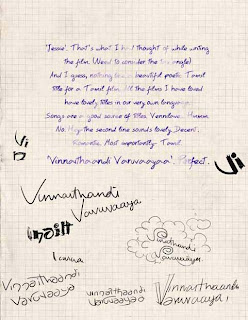 'Jessie'. That's what I had thought of while writing
the film. (Need to consider the tax angle)
And I guess, nothing like a beautiful poetic Tamil
title for a Tamil film. All the films I have loved
have lovely titles in our very own language.
Songs are a good source of titles. Vennilave.. Hmmm.
No. Hey the second line sounds lovely. Decent.
Romantic. Most importantly Tamil.
'Vinnaithaandi Varuvaayaa'. Perfect.
Vi
Vinnaithandi
Varuvaaya
Vinnaithaandi
Varuvaaya
vinnaithaandi
varuvaayaa
Vinnaithaandi
Varuvaaya